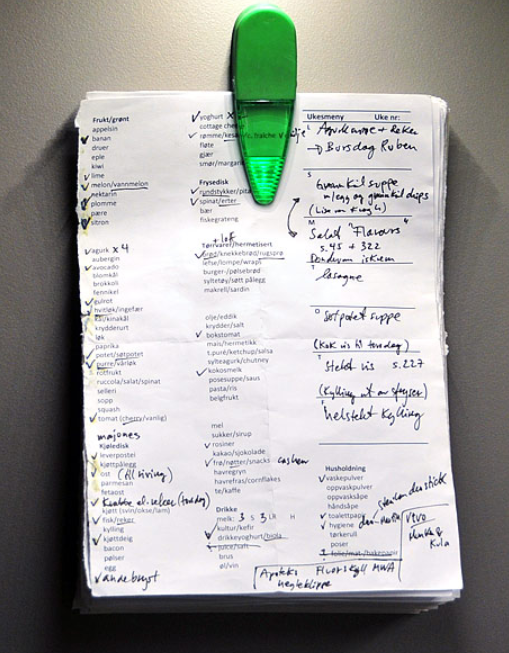 Frukt/grønt
appelsin
banan
druer
eple
kiwi
lime
melon/vannmelon
nektarin
plomme
pære
sitron
agurk x 4
aubergin
avocado
blomkål
brokkoli
fennikel
gulrot
hvitløk/ingefær
kål/kinakål
krydderurt
løk
paprika
potet/søtpotet
purre/vårløk
rotfrukt
ruccola/salat/spinat
selleri
sopp
squash
tomat (cherry/vanlig)
majones
Kjøledisk
leverpostei
kjøttpålegg
ost (til riving)
parmesan
fetaost
Krabbe el. reker (torsdag)
kjøtt (svin/okse/lam)
fisk/reker
kylling
kjøttdeig
bacon
pølser
egg
andebryst
yoghurt x
cottage
rømme/
fløte
gjær
smør/margarin
Frysedisk
rundstykker/pita
spinat/erter
bær
fiskegrateng
+ loff
Tørrvarer/hermetisert
brød/knekkebrød/rugsprø
lefse/lompe/wraps
burger-/pølsebrød
syltetøy/søtt pålegg
makrell/sardin
olje/eddik
krydder/salt
bokstomat
mais/hermetikk
t.puré/ketchup/salsa
sylteagurk/oliven
kokosmelk
posesuppe/saus
pasta/ris
belgfrukt
mel
sukker/sirup
rosiner
kakao/sjokolade
frø/nøtter/snacks cashew
havregryn
havrefras/cornflakes
te/kaffe
Drikke
melk: 3 s 3 LR H
kultur/kefir
drikkeyoghurt/biola
juice/saft
brus
øl/vin
Ukesmeny Uke nr:
+ Reker
→ Bursdag Ruben
S
suppe
M
Salat "Flavours"
s.45 + 322
T
lasagne
O
Søtpotet suppe
(Kok ris til torsdag)
T
Stekt ris s.227
(Kylling ut av fryser)
F
helstekt Kylling
Husholdning
vaskepulver
oppvaskpulver
oppvasksåpe
håndsåpe
toalettpapir
hygiene
tørkerull
poser
folie/mat-/bakepapir
Vivo
Kula
Apotek:
negleklippe
Fluorskyll MWA